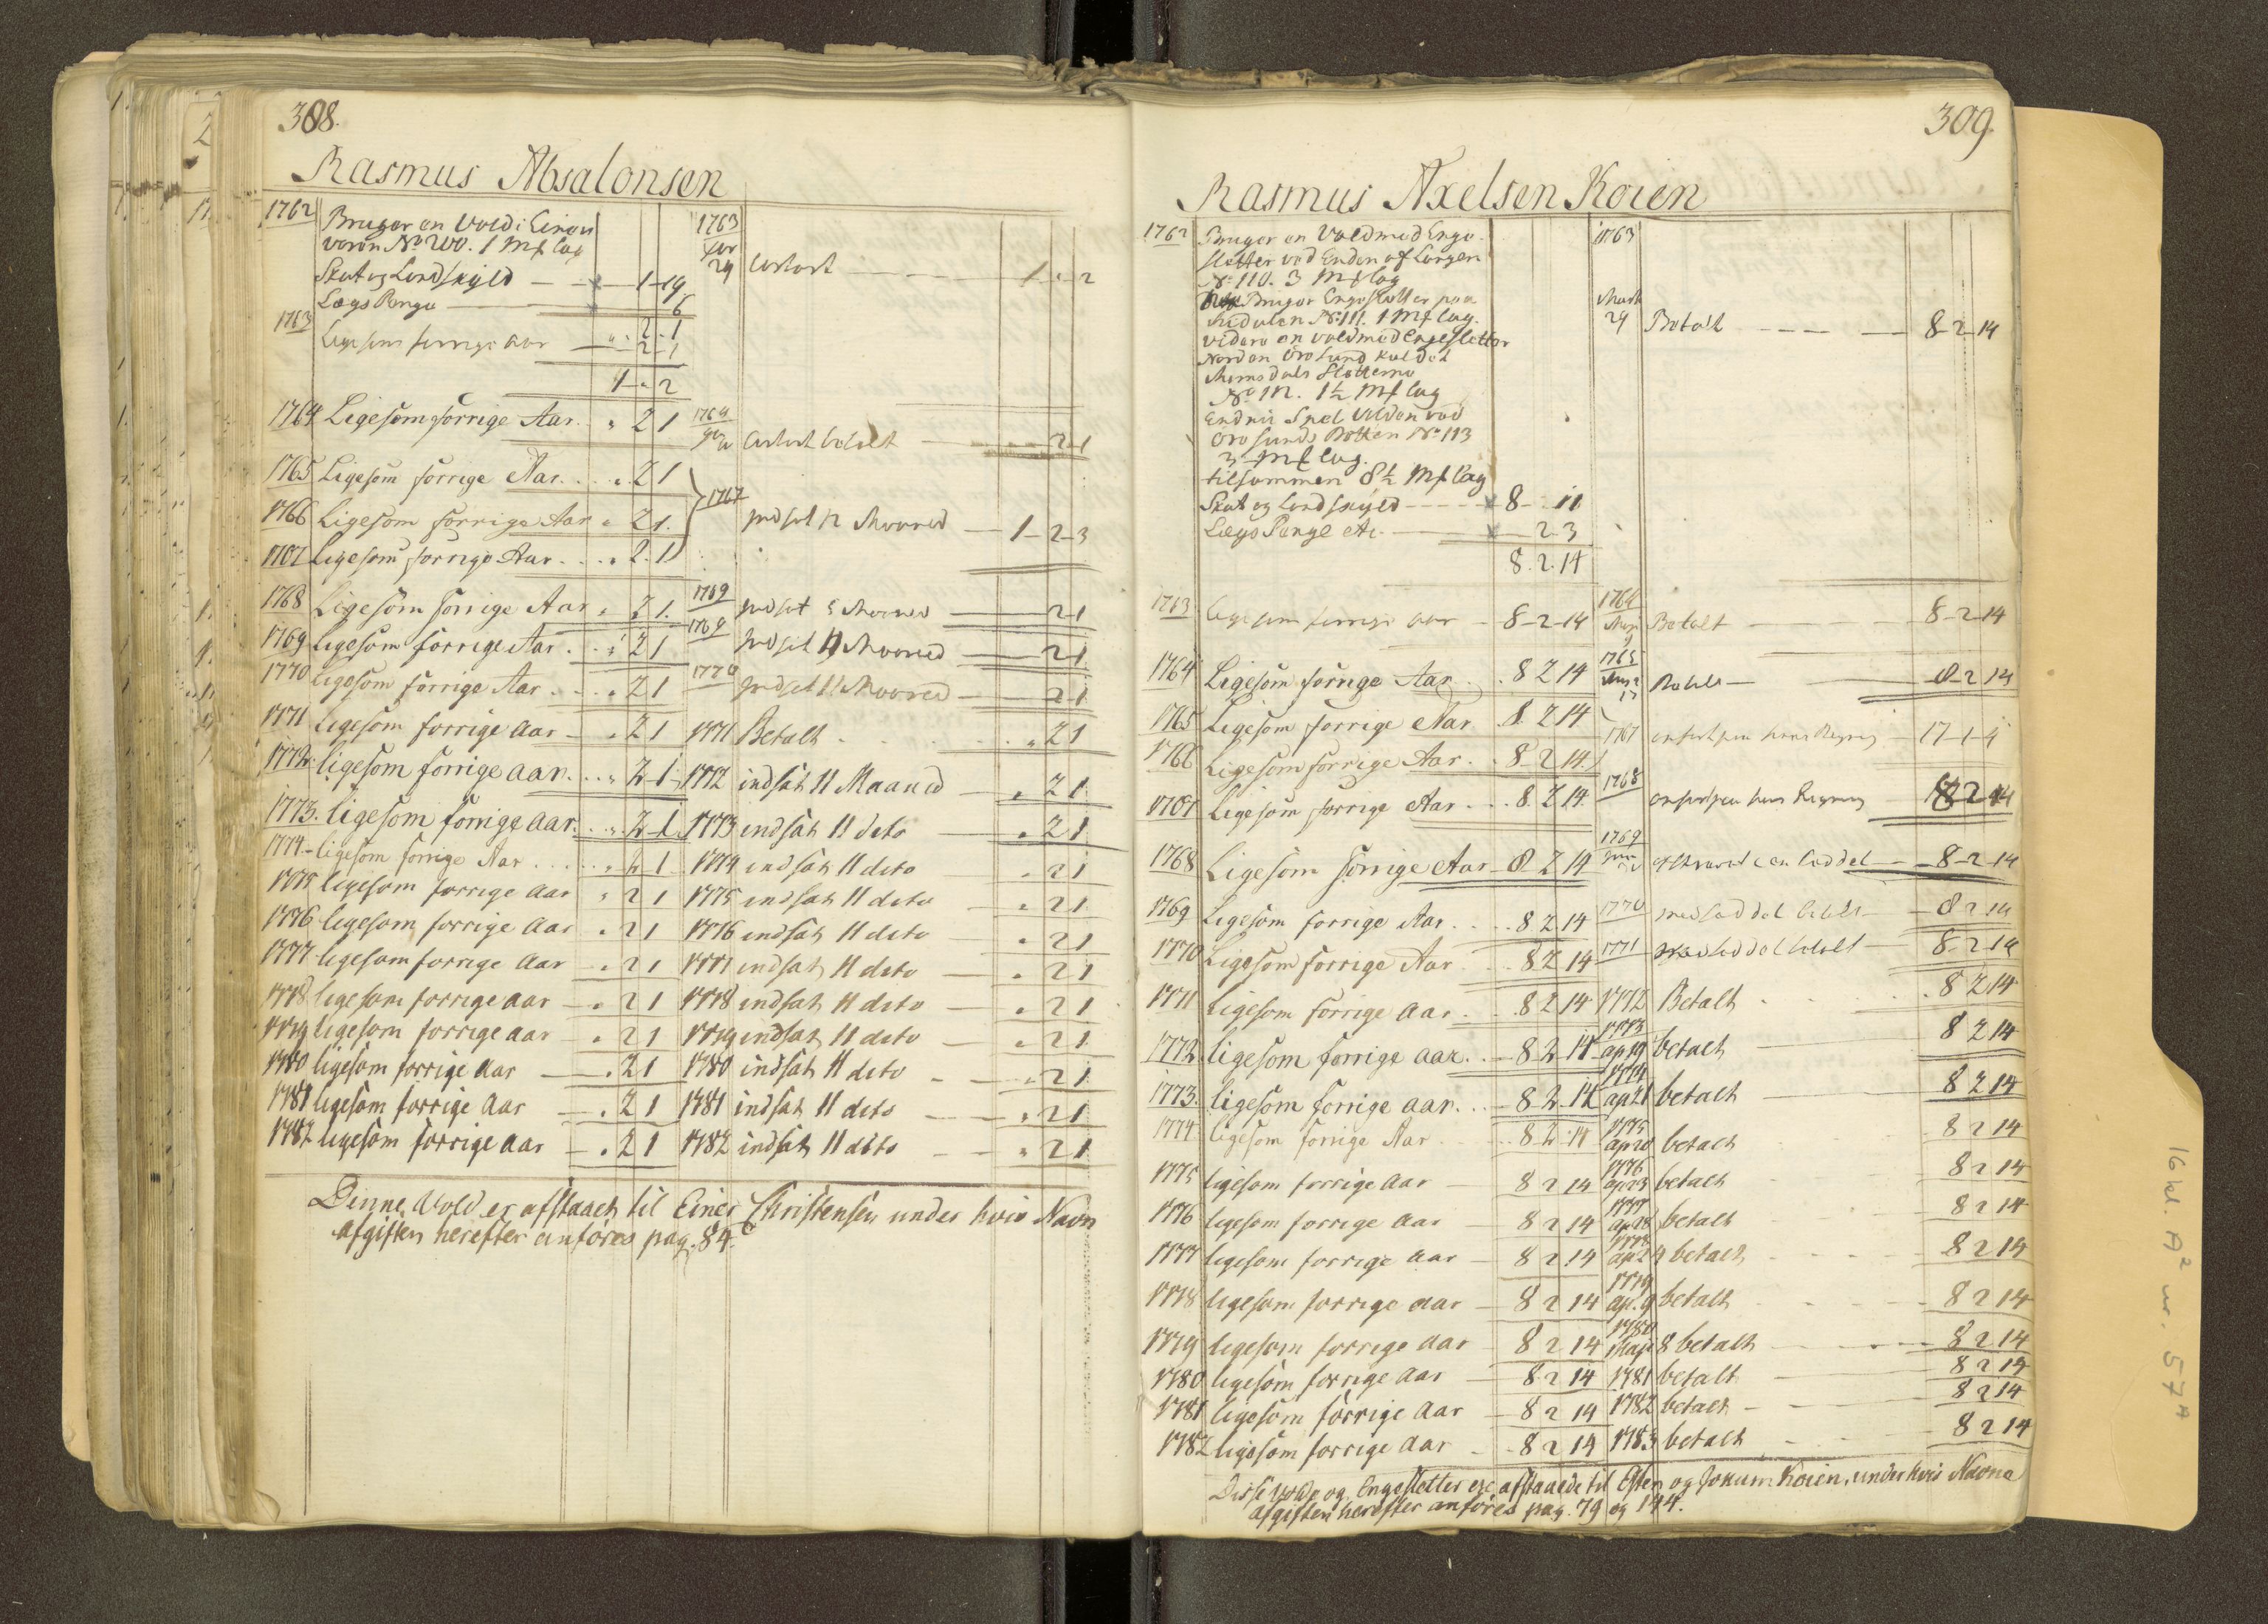 308.
Rasmus Absalonsen
1762 Bruger en Vold i Einen
N° 200. 1 Mk lag
Skat og Landskyld 1 19
Lægs Penge 6
2 1
1763 Lige som forrige aar 2 1
1 " 2
1764 Ligesom forrige Aar " 2 1
1765 Ligesom forrige Aar " 2 1
1766 Ligesom forrige Aar " 2 1
1767 Ligesom forrige Aar " 2 1
1768 Ligesom forrige Aar " 2 1
1769 ligesom forrige Aar " 2 1
1770 ligesom forrige Aar " 2 1
1771 ligesom forrige aar " 2 1
1772 ligesom forrige aar " 2 1
1773. ligesom forrige aar " 2 1
1774 ligesom forrige Aar " 2 1
1775 ligesom forrige aar " 2 1
1776 ligesom forrige aar " 2 1
1777 ligesom forrige aar " 2 1
1778 ligesom forrige aar " 2 1
1779 ligesom forrige aar " 2 1
1780 ligesom forrige aar " 2 1
1781 ligesom forrige aar " 2 1
1782 ligesom forrige aar " 2 1
1763
29 1 " 2
1764 betalt 2 1
1767 indsat 12 Maaned 1 2 3
1769 indsat Maaned 2 1
1769 indsat 11 Maaned 2 1
1770 indsat 11 Maaned 2 1
1771 Betalt " 2 1
1772 indsat 11 Maaned " 2 1
1773 indsat 11 dito " 2 1
1774 indsat 11 dito " 2 1
1775 indsat 11 dito " 2 1
1776 indsat 11 dito " 2 1
1777 indsat 11 dito " 2 1
1778 indsat 11 dito " 2 1
1779 indsat 11 dito " 2 1
1780 indsat 11 dito " 2 1
1781 indsat 11 dito " 2 1
1782 indsat 11 dito " 2 1
Denne Vold er afstaaet til Einer Christensen under hvis Navn
afgiften herefter anføres pag. 84.
309.
Rasmus Axelsen Koien
1762 Bruger en Vold med Enge
sletter ved Enden af Langen
N° 110. 3 Mk lag
Bruger Engesletter paa
N° 111. 1 Mk lag.
videre en vold med Engesletter
Norden Örosund kaldet
Sletterne
N° 112. 1½ Mk lag
Endnu Volden ved
Örosunds Botten N° 113
3 Mk lag.
tilsammen 8½ Mk lag
Skat og Landskyld 8 " 11
Lægs Penge etc. 2 3
8. 2. 14
1763 lige som forrige aar 8 2 14
1764 Ligesom forrige Aar 8 2 14
1765 Ligesom forrige Aar 8 2 14
1766 Ligesom forrige Aar 8 2 14
1767 Ligesom forrige Aar 8 2 14
1768 Ligesom forrige Aar 8 2 14
1769 Ligesom forrige Aar 8 2 14
1770 Ligesom forrige Aar 8 2 14
1771 ligesom forrige aar 8 2 14
1772 ligesom forrige aar 8 2 14
1773. ligesom forrige aar 8 2 14
1774 ligesom forrige Aar 8 2 14
1775 ligesom forrige aar 8 2 14
1776 ligesom forrige aar 8 2 14
1777 ligesom forrige aar 8 2 14
1778 ligesom forrige aar 8 2 14
1779 ligesom forrige aar 8 2 14
1780 ligesom forrige aar 8 2 14
1781 ligesom forrige aar 8 2 14
1782 ligesom forrige aar 8 2 14
1763
Mart
29 Betalt 8 2 14
1764 Betalt 8 2 14
1765 Betalt 8 2 14
1767 anført paa hans Regning 17 1 4
1768 anført paa hans Regning 8 2 14
1769 8 2 14
1770 med Seddel betalt 8 2 14
1771 Seddel betalt 8 2 14
1772 Betalt 8 2 14
1773 ap 19 betalt 8 2 14
1774 ap 21 betalt 8 2 14
1775 ap 20 betalt 8 2 14
1776 ap 23 betalt 8 2 14
1777 ap 28 betalt 8 2 14
1778 ap 24 betalt 8 2 14
1779 apr. 9 betalt 8 2 14
1780 Maj 8 betalt 8 2 14
1781 betalt 8 2 14
1782 betalt 8 2 14
1783 betalt 8 2 14
Disse Volde og Engesletter ere afstaaede til Osten og Jokum Koien, under hvis Navne
afgiften herefter anføres pag. 79 og 144.
16 kl. A² nr. 57 A